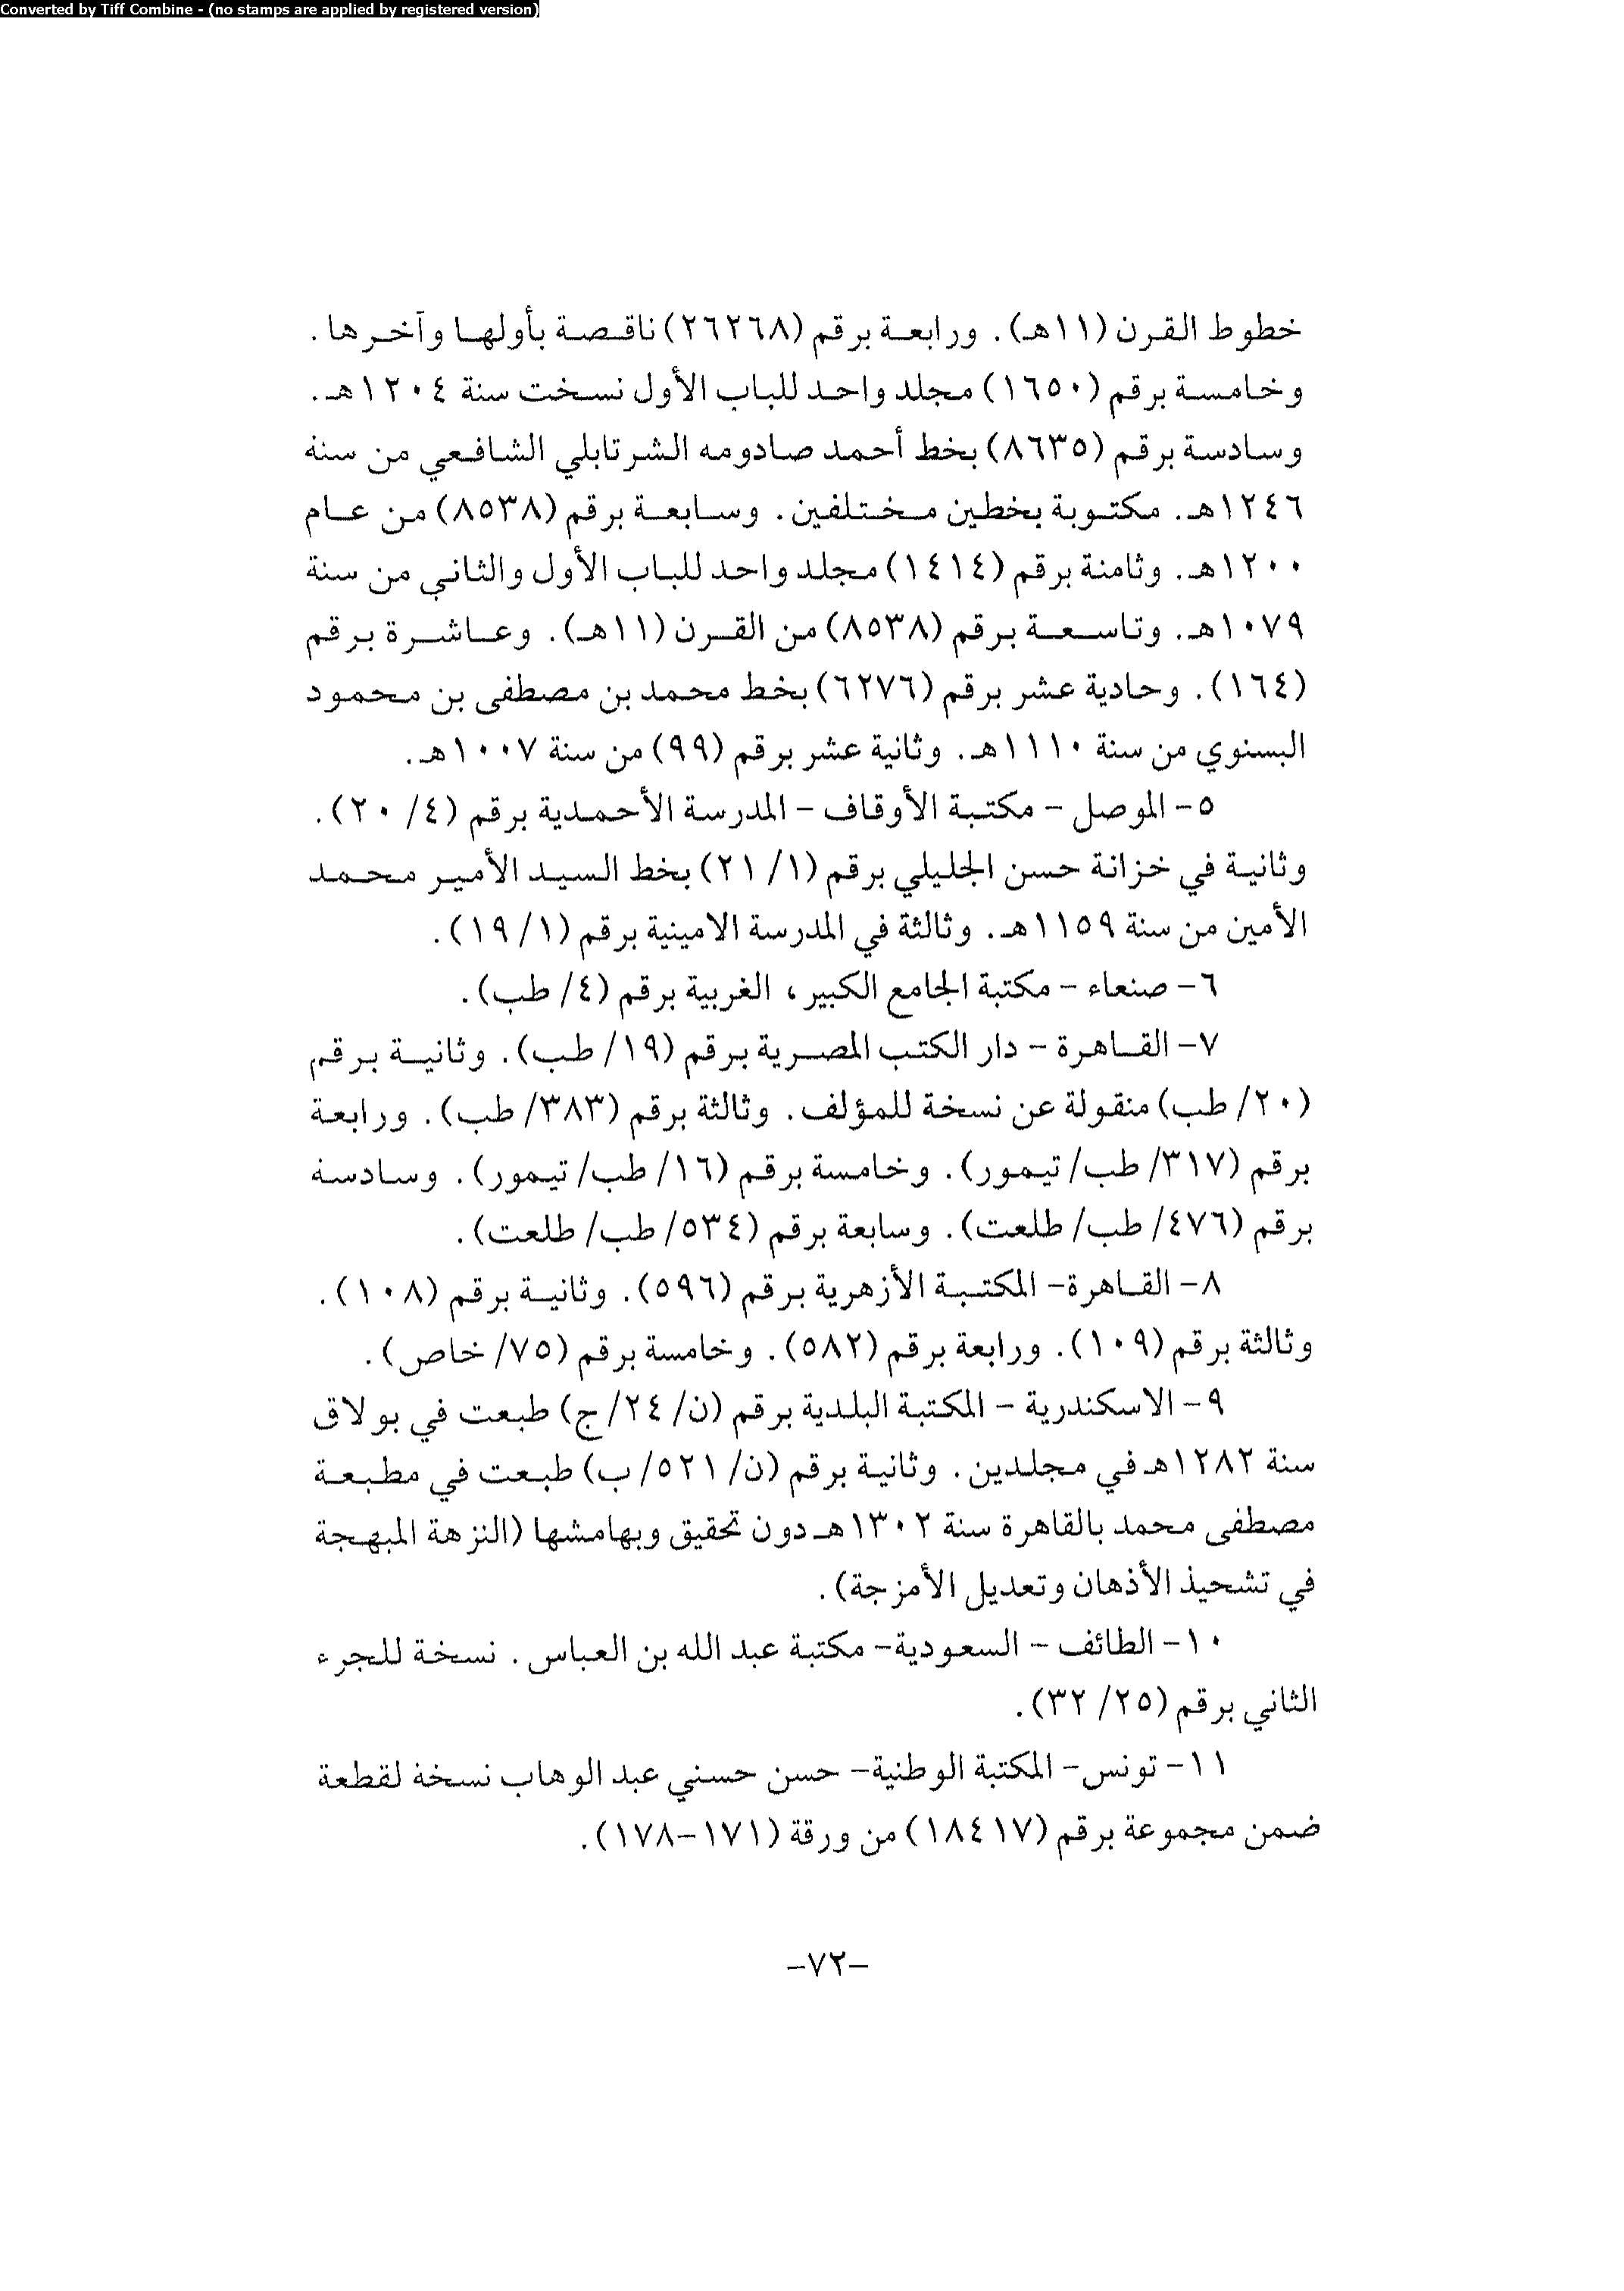 Converted by Tiff Combine - (no stamps are applied by registered version)
خطوط القرن (١١هـ). ورابعة برقم (٢٦٢٦٨) ناقصة بأولها وآخرها.
وخامسة برقم (١٦٥٠) مجلد واحد للباب الأول نسخت سنة ١٢٠٤هـ.
وسادسة برقم (٨٦٣٥) بخط أحمد صادومه الشرتابلي الشافعي من سنة
١٢٤٦هـ. مكتوبة بخطين مختلفين. وسابعة برقم (٨٥٣٨) من عام
١٢٠٠هـ. وثامنة برقم (١٤١٤) مجلد واحد للباب الأول والثاني من سنة
١٠٧٩هـ. وتاسعة برقم (٨٥٣٨) من القرن (١١هـ). وعاشرة برقم
(١٦٤). وحادية عشر برقم (٦٢٧٦) بخط محمد بن مصطفى بن محمود
البسنوي من سنة ١١١٠هـ. وثانية عشر برقم (٩٩) من سنة ١٠٠٧هـ.
٥- الموصل - مكتبة الأوقاف - المدرسة الأحمدية برقم (٤/ ٢٠).
وثانية في خزانة حسن الجليلي برقم (١/ ٢١) بخط السيد الأمير محمد
الأمين من سنة ١١٥٩هـ. وثالثة في المدرسة الامينية برقم (١/ ١٩).
٦- صنعاء - مكتبة الجامع الكبير، الغربية برقم (٤/ طب).
٧- القاهرة - دار الكتب المصرية برقم (١٩/ طب). وثانية برقم
(٢٠/ طب) منقولة عن نسخة للمؤلف. وثالثة برقم (٣٨٣/ طب). ورابعة
برقم (٣١٧/ طب/ تيمور). وخامسة برقم (١٦/ طب/ تيمور). وسادسة
برقم (٤٧٦/ طب/ طلعت). وسابعة برقم (٥٣٤/ طب/ طلعت).
٨- القاهرة- المكتبة الأزهرية برقم (٥٩٦). وثانية برقم (١٠٨).
وثالثة برقم (١٠٩). ورابعة برقم (٥٨٢). وخامسة برقم (٧٥/ خاص).
٩- الاسكندرية - المكتبة البلدية برقم (ن/ ٢٤/ ج) طبعت في بولاق
سنة ١٢٨٢هـ في مجلدين. وثانية برقم (ن/ ٥٢١/ ب) طبعت في مطبعة
مصطفى محمد بالقاهرة سنة ١٣٠٢هـ دون تحقيق وبهامشها (النزهة المبهجة
في تشحيذ الأذهان وتعديل الأمزجة).
١٠- الطائف - السعودية- مكتبة عبد الله بن العباس. نسخة للجرء
الثاني برقم (٢٥/ ٣٢).
١١- تونس- المكتبة الوطنية- حسن حسني عبد الوهاب نسخة لقطعة
ضمن مجموعة برقم (١٨٤١٧) من ورقة (١٧١-١٧٨).
-٧٢-